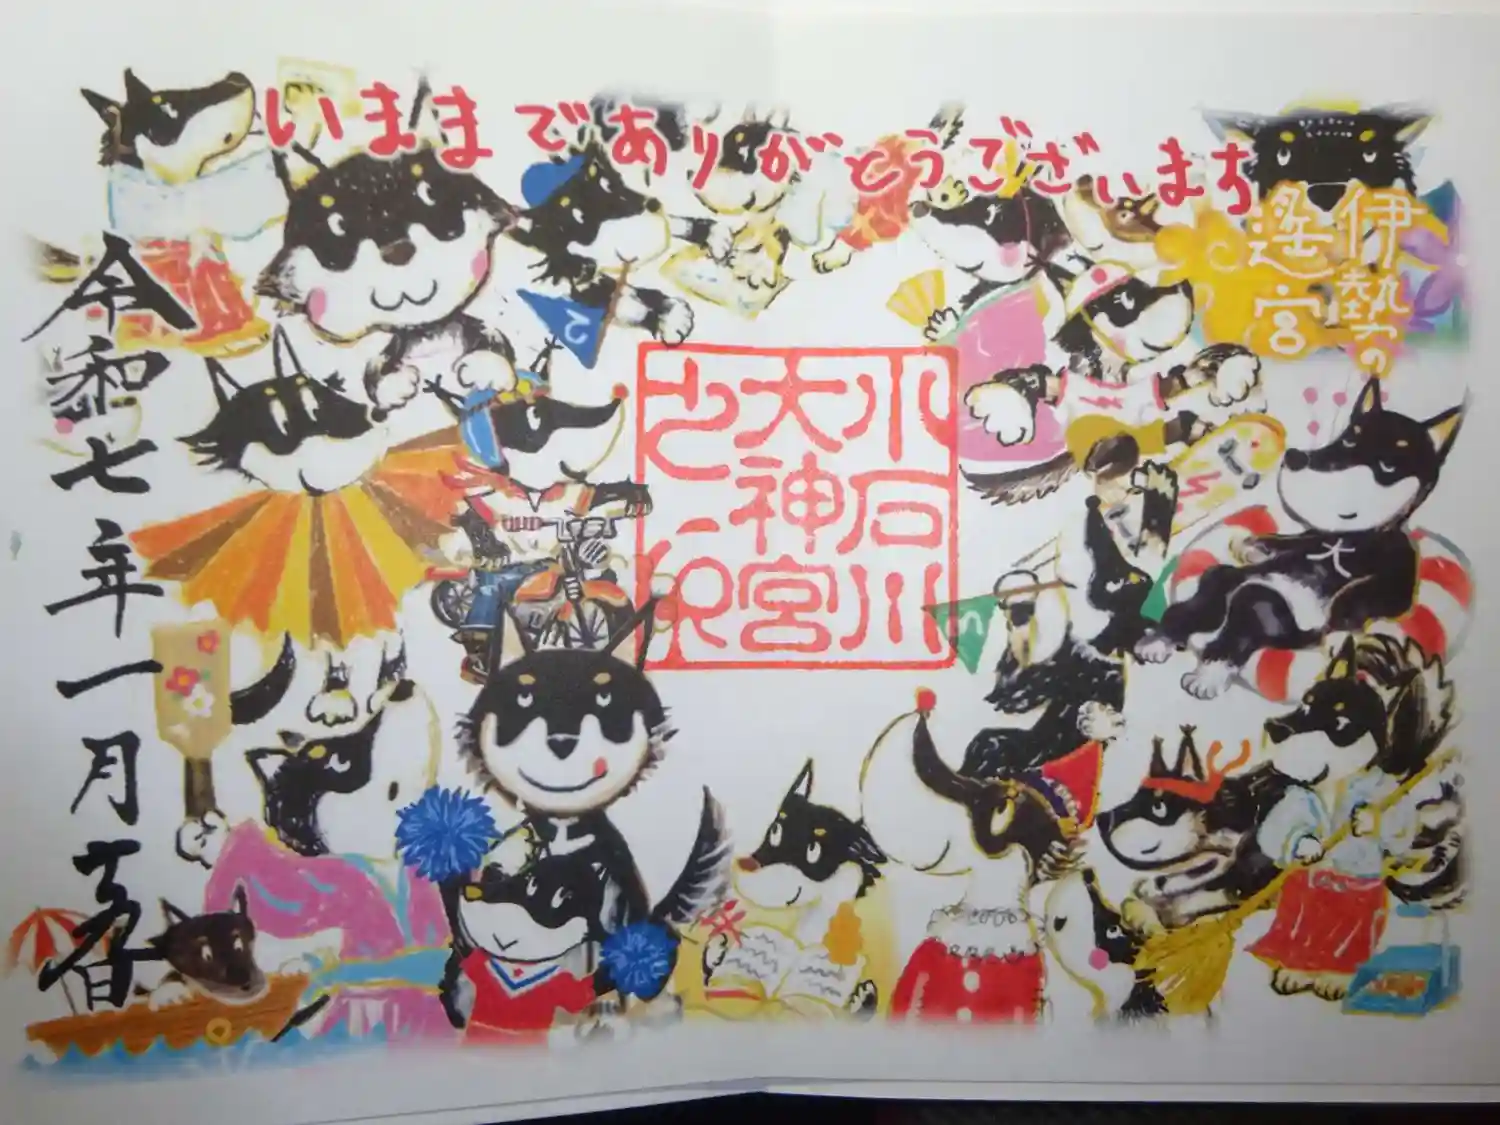 いままでありがとうございます
伊勢の
遥宮
小石川
大神宮
之印
大
令和七年一月